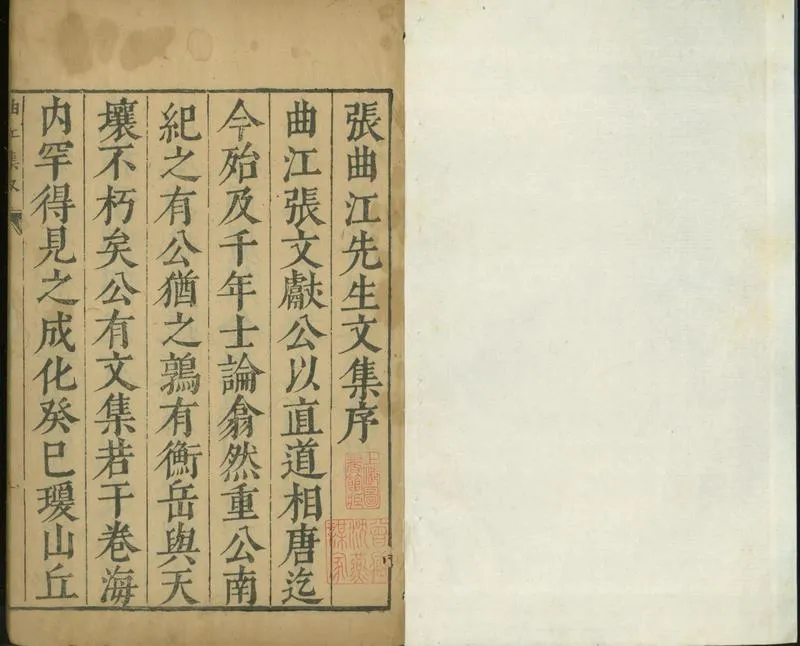 張曲江先生文集序
曲江張文獻公以直道相唐迄
今殆及千年士論翕然重公南
紀之有公猶之鶉有衡岳與天
壤不朽矣公有文集若干卷海
内罕得見之成化癸巳瓊山丘
曲江集
上海圖書館藏